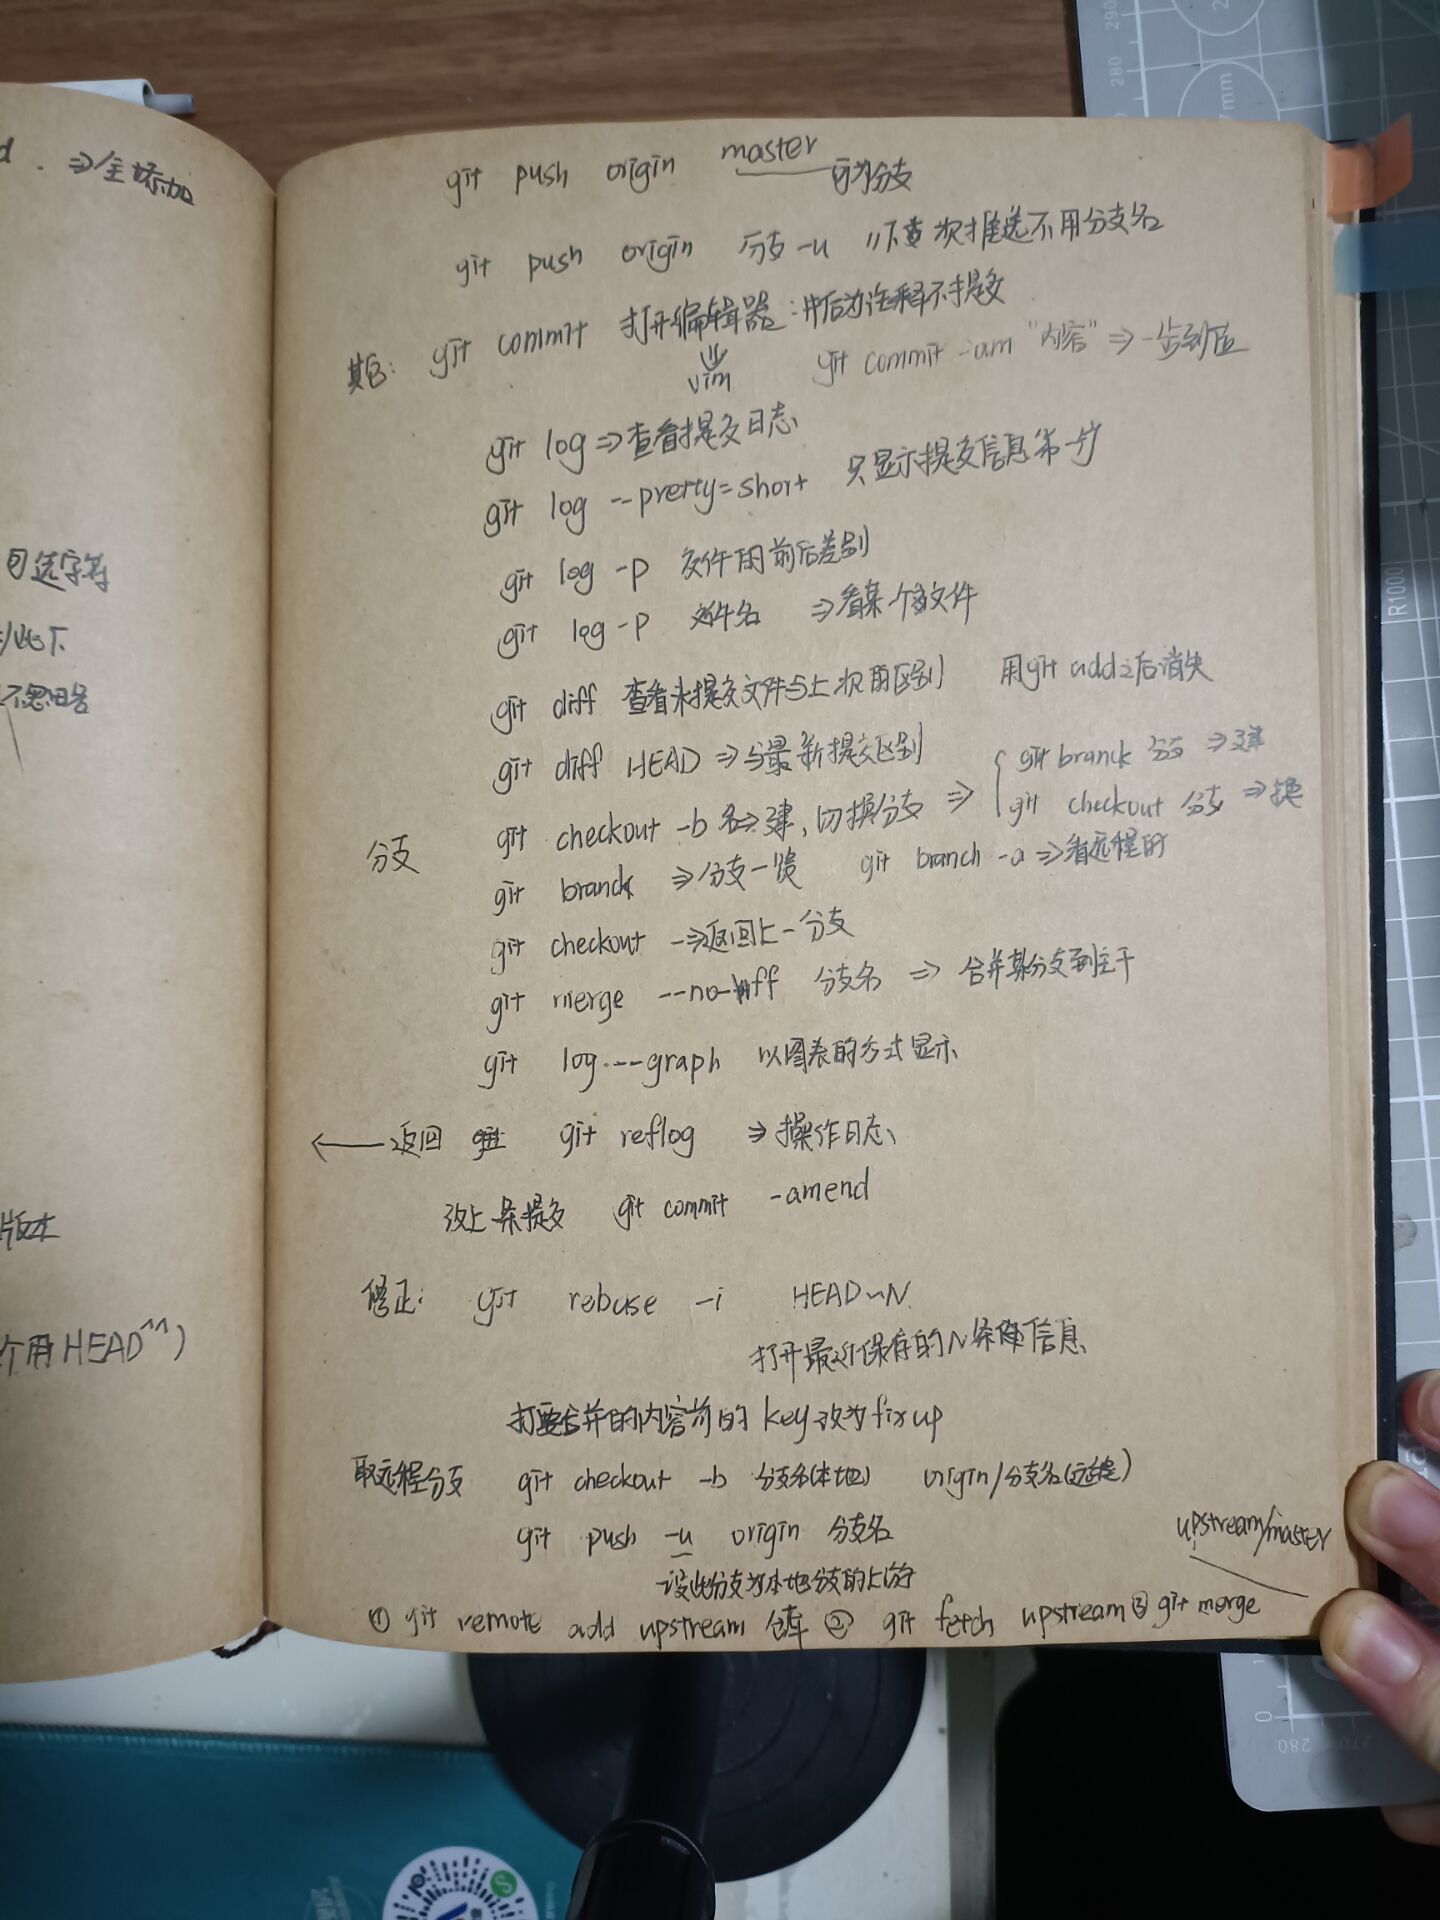 ⇒全添加
可选字符
以下
不忽略
版本
个用HEAD^^)
git push origin master 可为分支
git push origin 分支 -u //下次推送不用分支名
其它: git commit 打开编辑器:#后为注释不提交
⇓
vim git commit -am "内容" ⇒一步到位
git log ⇒查看提交日志
git log --pretty=short 只显示提交信息第一行
git log -p 文件的前后差别
git log -p 文件名 ⇒看某个文件
git diff 查看未提交文件与上次的区别 用git add之后消失
git diff HEAD ⇒与最新提交区别
git branck 分支 ⇒建
分支 git checkout -b 名⇒建,切换分支 ⇒ git checkout 分支 ⇒换
git branck ⇒分支一览 git branch -a ⇒看远程的
git checkout -⇒返回上一分支
git merge --no-ff 分支名 ⇒ 合并某分支到主干
git log --graph 以图表的方式显示
←返回 git reflog ⇒操作日志
改上条提交 git commit -amend
修正: git rebase -i HEAD~N
打开最近保存的N条信息
打要合并的内容前的key改为fixup
取远程分支 git checkout -b 分支名(本地) origin/分支名(远程)
git push -u origin 分支名
设此分支为本地分支的上游
upstream/master
① git remote add upstream 仓库 ② git fetch upstream ③ git merge
R1000
290
280
0
280
270